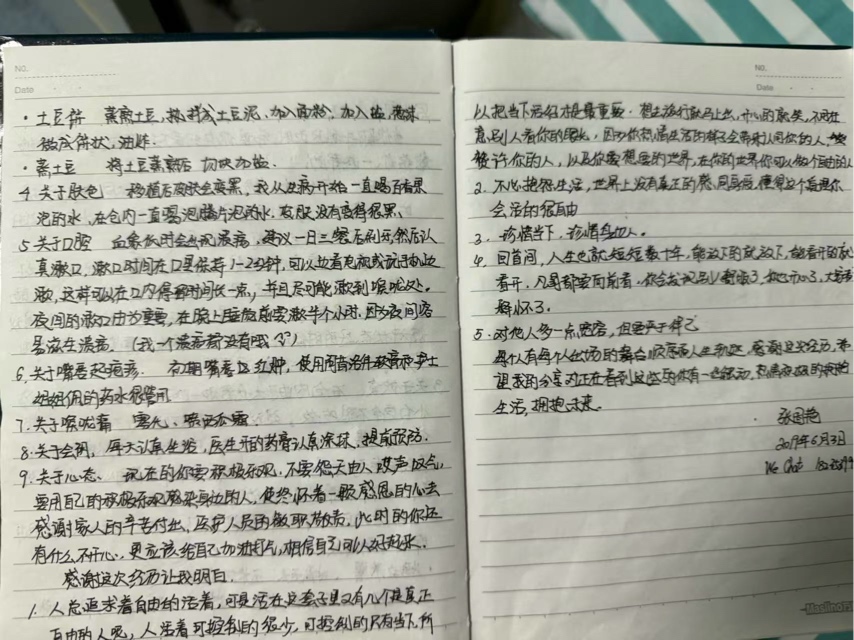 No.
Date
·土豆饼 蒸熟土豆,搅拌成土豆泥,加入面粉,加入盐,
做成饼状,油炸.
·蒸土豆 将土豆蒸熟后切块加盐.
4.关于肤色 移植后皮肤会变黑,我从生病开始一直喝百香果
泡的水,在仓内一直喝泡腾片泡的水,皮肤没有变得很黑.
5.关于口腔 血象低时会出现溃疡,建议一日三餐后刷牙然后认
真漱口,漱口时间在口里保持1-2分钟,可以边看电视或玩手机边
漱,这样可以在口内停留时间长一点,并且尽可能漱到喉咙处.
夜间的漱口尤为重要,在晚上睡觉前要漱半个小时,因为夜间容
易发生溃疡.(我一个溃疡都没有哦)
6.关于嘴唇起疱疹. 有期嘴唇红肿,使用
姐姐们的药水很管用
7.关于喉咙痛 雾化、喷西瓜霜
8.关于会阴,每天认真坐浴,医生开的药膏认真涂抹,提前预防.
9.关于心态. 现在的你要积极乐观,不要怨天由人唉声叹气,
要用自己的积极乐观感染身边的人,使终怀着一颗感恩的心去
感谢家人的辛苦付出,医护人员的敬职敬责,此时的你还
有什么不开心,更应该给自己加油打气,相信自己可以好起来.
感谢这次经历让我明白.
1.人总追求着自由的活着,可是活在这辈子里又有几个是真正
自由的人呢,人活着可控制的很少,可控制的只有当下,所
No.
Date
以把当下活好才是最重要.想去旅行就马上去,开心的就笑,不用在
意别人看你的眼光,因为你热情生活的样子会带来认同你的人,
赞许你的人,以及你要想要的世界,在你的世界你可以做个自由的人
2.不必抱怨生活,世界上没有真正的感同身受,懂得这个道理你
会活的很自由
3.珍惜当下,珍惜身边人.
4.回首间,人生也就短短数十年,能放下的就放下,能看开的就
看开,凡事都要向前看.你会发现
释怀了.
5.对他人多一点宽容,但要善于择己
每个人有每个人出场的舞台顺序和人生轨迹,感谢这次经历,希
望我的分享对正在看到这些的你有一些帮助,热情
生活,拥抱未来.
2019年6月3日